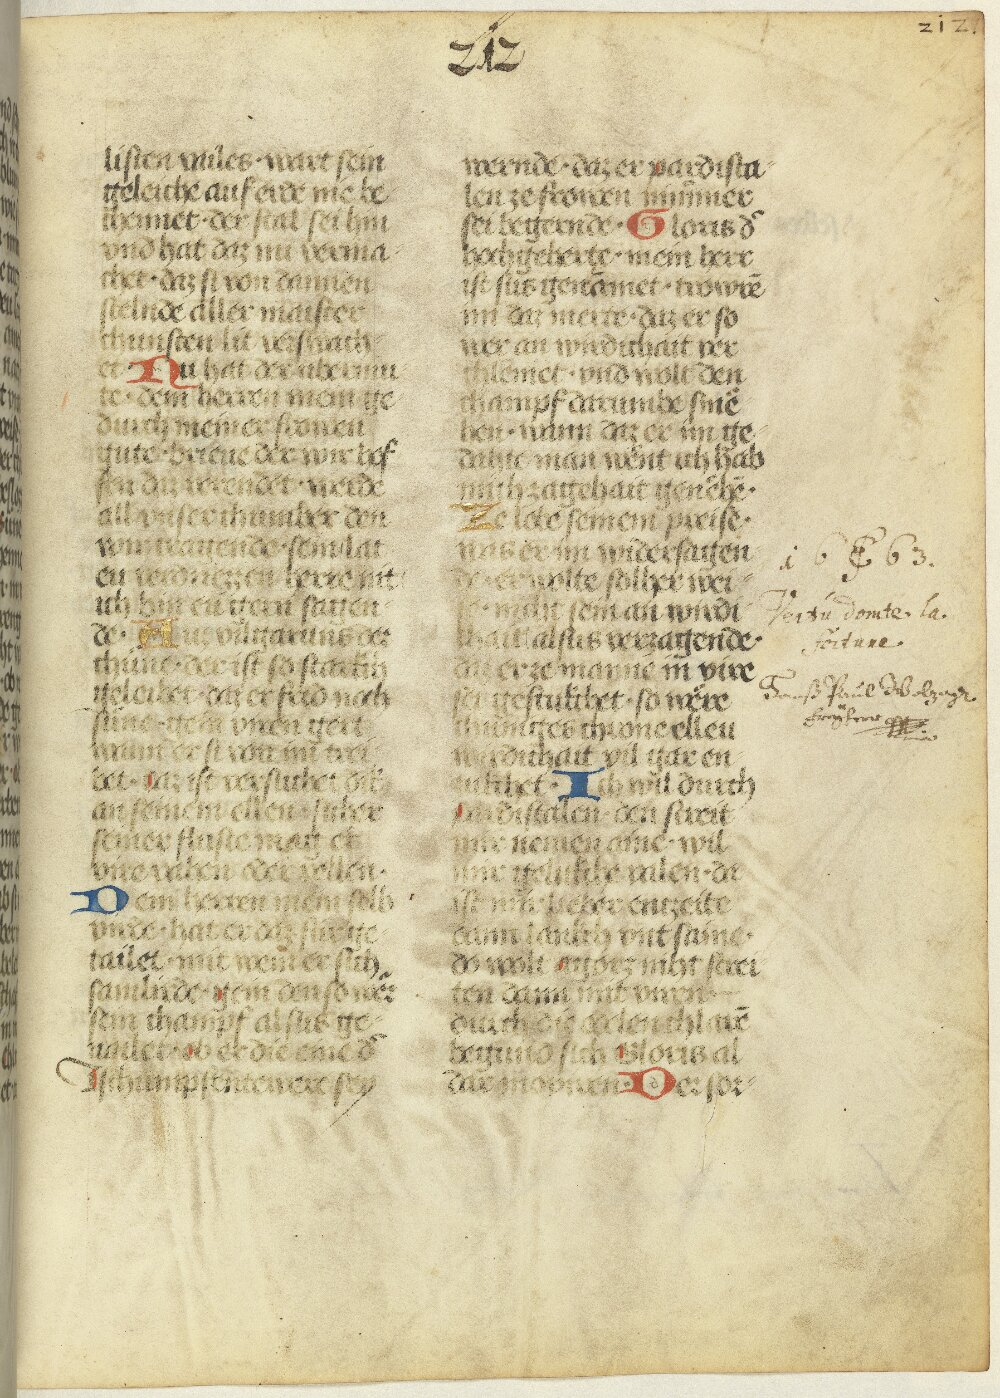 212
212.
listen vviles · wart sein
geleiche auf erde nie be
chennet · der stal sei hin
vnd hat daz nu verma
chet · daz si von dannen
stelnde aller maister
chunsten lit verswach
et · Nu hat der vbermu
te · dem herren mein ge
durch meiner frowen
gute · brieue der wir hof
fen daz verendet · werde
all vnser chumber den
wir tragende · sein lat
eu verdriezzen herre nit
ich bin eu gern sagen
de ·
chune · der ist so starkch
geleibet · daz er frid noch
sune · gein viren gert
wann er si von im trei
bet · daz ist versuchet dik
an seinem ellen · sicher
seiner fluste mag er
vire vahen oder vellen ·
Dem herren mein selb
virde · hat er daz für ge
tailet · mit wem er sich
samlirde · gein den so wer
sein champf alsus ge
uailet · ob er die eine d
Ischumpfentewere sey
wernde · daz er pardisca
len ze frowen nimmer
sei begernde · Gloris d
hochgeberte · mein herr
ist sus genamet · trowre
im daz merte · daz er so
wer an wirdichait ver
chlemet · vnd wolt den
champf darumbe sme
hen · wann daz er im ge
dahte man went ich hab
mich zagehait genehe ·
Ze lobe seinem preise ·
was er im widersagen
de · er wolte solher wei
se · niht sein an wirdi
chait alsus verzagende ·
daz er ze manne in vire
sei gestukhet · so were
chuniges chrone elleu
wirdichait vil gar en
zukhet · Ich wil durch
pardiscalen · den streit
mir nemen aine · wil
mir gelukhe valen · da
ist mir lieber enzeite
dann lankch mit saine ·
do wolt agors niht strei
ten dann mit viren
durch die edelen chlare
begund sich Gloris al
dar mopiren · Der sor
16 63.
Vertu domte la
fortune.
Hanß Paul Wolzogn
freyherr